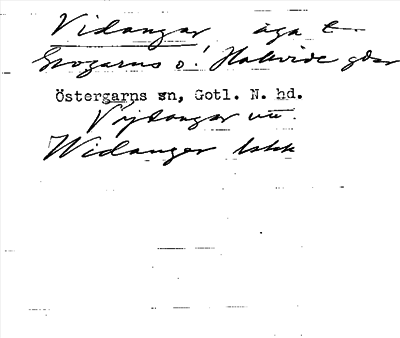 Vidangar äga t
Grogarns o. Hallvide gdar
Östergarns sn, Gotl. N. hd.
Vijdangar
Widanger